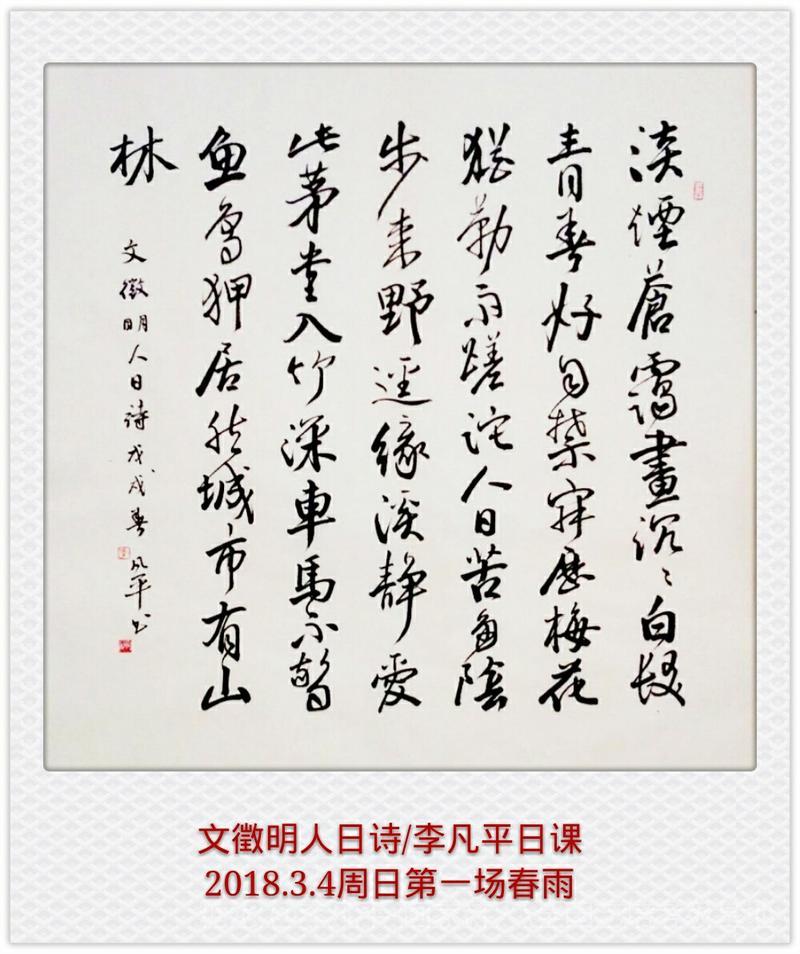 淡煙蒼靄畫沉〻白髮
青春好自禁寂歷梅花
猶勒雨蹉跎人日苦多陰
步来野逕緣溪静愛
此茅堂入竹深車馬不驚
鱼鳥狎居然城市有山
林
文徵明人日诗戊戌春凡平书
文徵明人日诗/李凡平日课
2018.3.4周日第一场春雨